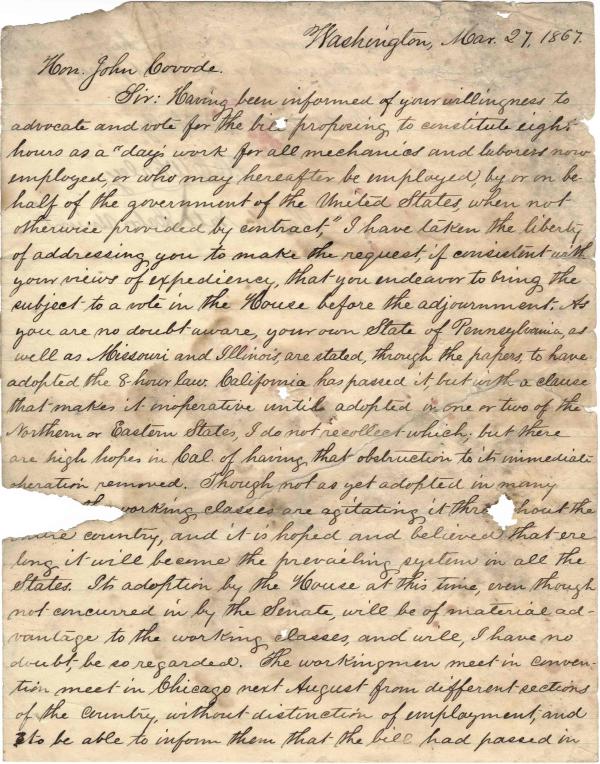 Washington, Mar. 27, 1867.
Hon. John Covode.
Sir: Having been informed of your willingness to
advocate and vote for the bill proposing to constitute eight
hours as a "day's work for all mechanics and laborers now
employed, or who may hereafter be employed, by or on be-
half of the government of the United States, when not
otherwise provided by contract," I have taken the liberty
of addressing you to make the request, if consistent with
your views of expediency, that you endeavor to bring the
subject to a vote in the House before the adjournment. As
you are no doubt aware, your own State of Pennsylvania, as
well as Missouri and Illinois, are stated, through the papers, to have
adopted the 8 hour law. California has passed it, but with a clause
that makes it inoperative until adopted in one or two of the
Northern or Eastern States, I do not recollect which; but there
are high hopes in Cal. of having that obstruction to its immediate
operation removed. Though not as yet adopted in many
working classes are agitating it thr hout the
country, and it is hoped and believed that ere
long it will become the prevailing system in all the
States. Its adoption by the House at this time, even though
not concurred in by the Senate, will be of material ad-
vantage to the working classes, and will, I have no
doubt, be so regarded. The workingmen meet in conven-
tion meet in Chicago next August from different sections
of the country, without distinction of employment, and
to be able to inform them that the bill had passed in